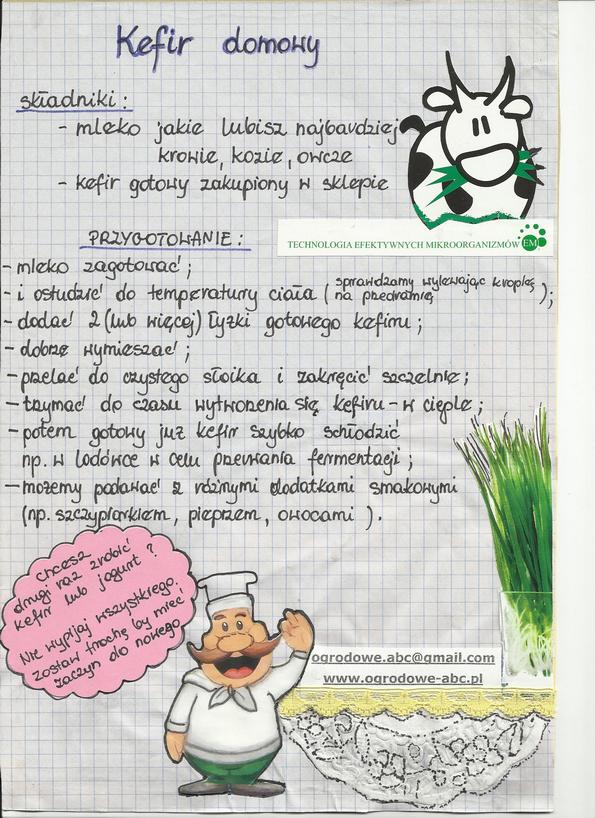 Kefir domowy
składniki:
- mleko jakie lubisz najbardziej
krowie, kozie, owcze
- kefir gotowy zakupiony w sklepie
PRZYGOTOWANIE:
TECHNOLOGIA EFEKTYWNYCH MIKROORGANIZMÓW EM
- mleko zagotować;
- i ostudzić do temperatury ciała (sprawdzamy wylewając kroplę
na przedramię);
- dodać 2 (lub więcej) łyżki gotowego kefiru;
- dobrze wymieszać;
- przelać do czystego słoika i zakręcić szczelnie;
- trzymać do czasu wytworzenia się kefiru - w cieple;
- potem gotowy już kefir szybko schłodzić
np. w lodówce w celu przerwania fermentacji;
- możemy podawać z różnymi dodatkami smakowymi
(np. szczypiorkiem, pieprzem, owocami).
Chcesz
drugi raz zrobić
kefir lub jogurt?
Nie wypijaj wszystkiego.
Zostaw trochę by mieć
zaczyn do nowego
ogrodowe.abc@gmail.com
www.ogrodowe-abc.pl